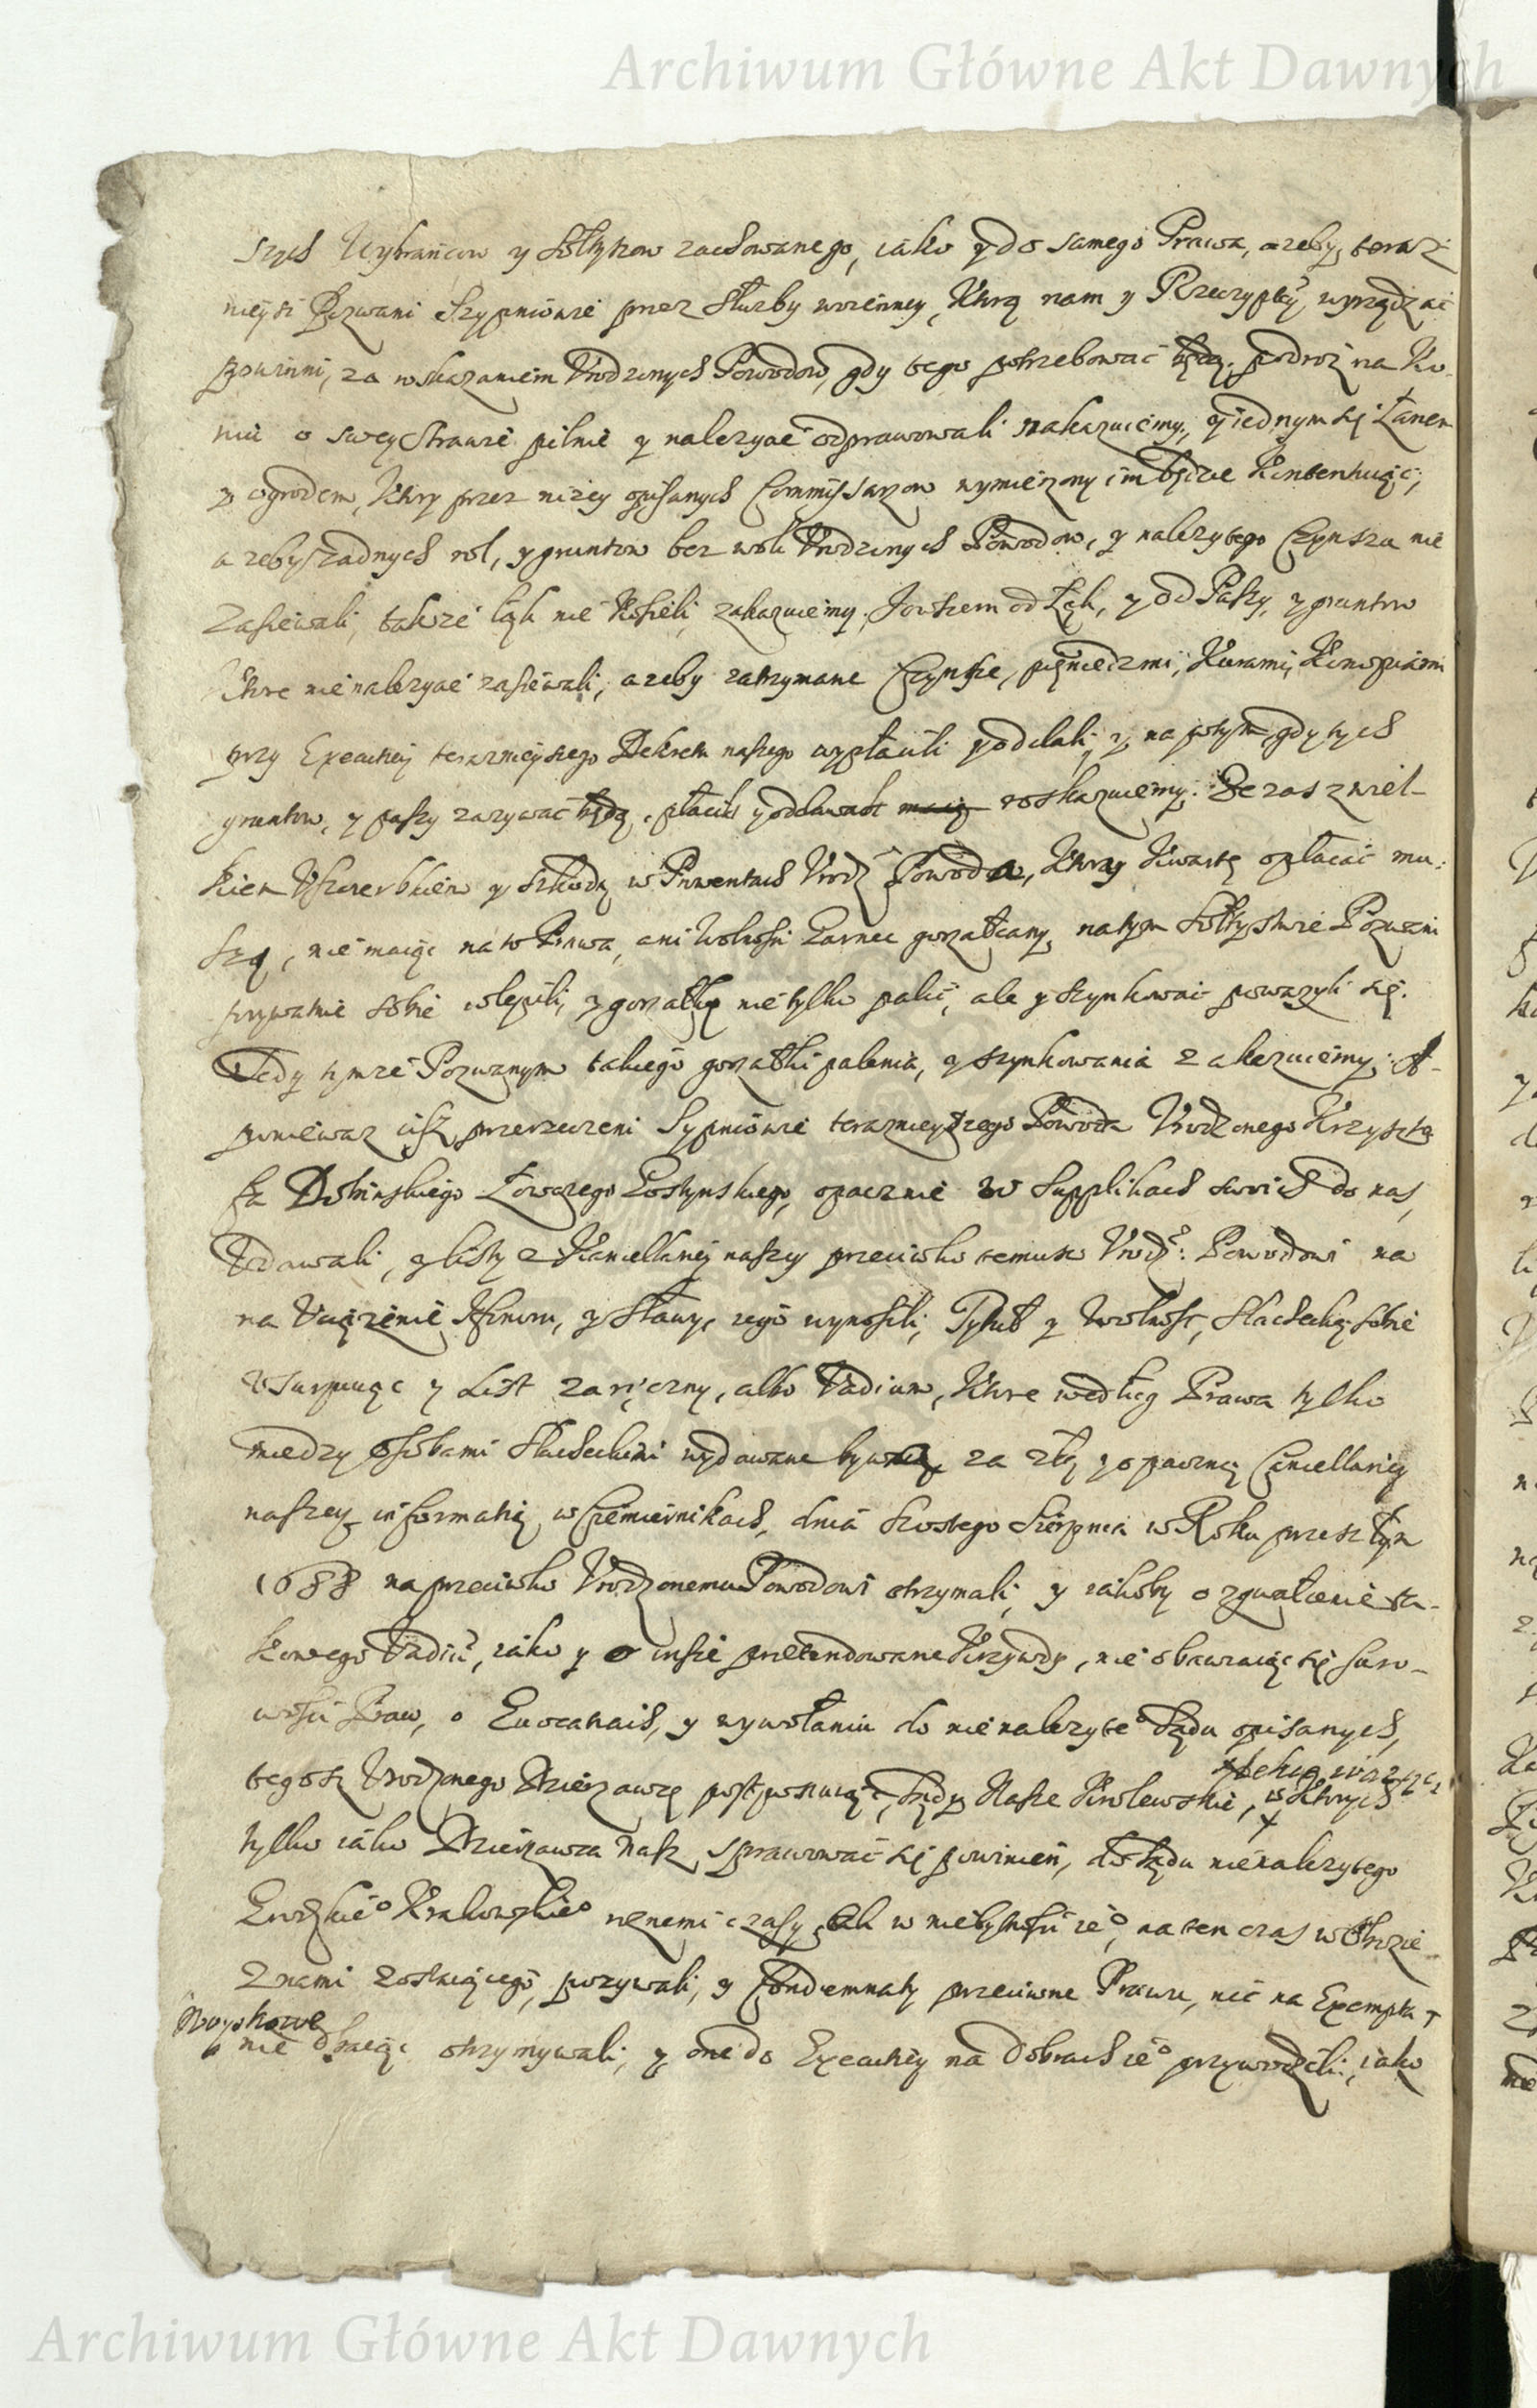 Archiwum Główne Akt Dawnych
szych Wybrańcow y Sołtysow zachowanego, iako y do samego Prawa, azeby teraz-
nieysi Pozwani Szypniowie przez Służby woienney, Ktorą nam y Rzeczypltey wyrządzać
powinni, za wskazaniem Urodzonych Powodow, gdy tego potrzebować będą, podroż na Ko-
niu o swey Strawie pilnie y należycie odprawowali nakazuiemy, y iednym się Łanem
z ogrodem, Ktory przez niżey opisanych Commissarzow wymierzony im będzie Kontentuiąc,
a zeby żadnych rol, y gruntow bez woli Urodzonych Powodow, y należytego Czynszu nie
Zasiewali, takze łąk nie Kosieli, zakazuiemy. Inszem od Łąk, y od Paszy, y gruntow
Ktore nienależycie zasiewali, azeby zatrzymane Czynsze, pieniędzmi, Kurami, Konopiami
przy Execuciey terazniejszego Dekretu naszego wypłacili y oddali, y na potym gdy tych
gruntow, y paszy zazywać będą, płacili y oddawali roskazuiemy. Ze zas z wiel-
kiem Uszczerbkiem y szkodą w Prowentach Urodz: Powoda, Ktory Kwartę opłacać mu-
szą, nie maiąc na to Prawa, ani Wolności Garnec gorzałczany, na tym Sołtystwie Pozwani
prywatnie sobie wlepili, y gorzałkę nie tylko palić, ale y szynkować poważyli się.
Tedy tymże Pozwanym takiego gorzałki palenia, y szynkowania zakazuiemy. A-
poniewaz ciż przerzeczeni Sypniowie terazniejszego Powoda Urodzonego Krzyszto
fa Dobinskiego Łowczego Gostynskiego, opacznie w Supplikach swoich do nas,
Udawali, y listy z Kancellariey naszey przeciwko temusz Urodz: Powodowi na
na Uciążenie Honoru, y Sławy iego wynosili, Tytuł y Wolność Slachecką sobie
Usurpuiąc y List zaręczny, albo Vadium, Ktore według Prawa tylko
między osobami Slacheckimi wydawane bywa, za złą y opaczną Cancellariey
naszey informatią w Czemiernikach, dnia Szostego Sierpnia w Roku przeszłym
1688 naprzeciwko Urodzonemu Powodowi otrzymali, y iakoby o zgwałcenie ta-
kowego Vadiu, iako y o insze praetendowane Krzywdy, nie obawiaiąc się suro-
wości Praw, o Euocatiach, y wywołaniu do nienależyteo Sądu opisanych,
tegosz Urodzonego Dzierzawcę postponuiąc, Sądy Nasze Krolewskie, w Ktorych
tylko iako Dzierzawca nasz, sprawować się powinien, do Sądu nienależytego
Grodzkieo Krakowskieo roznemi czasy, w niebytności ieo, na ten czas w Obozie
Z nami zostaiącego, pozywali, y Condemnaty przeciwne Prawu, nic na Exempta
Woyskowe
nie dbaiąc otrzymywali, y one do Execuciey na dobrach ieo przywodzili, iako
Archiwum Główne Akt Dawnych